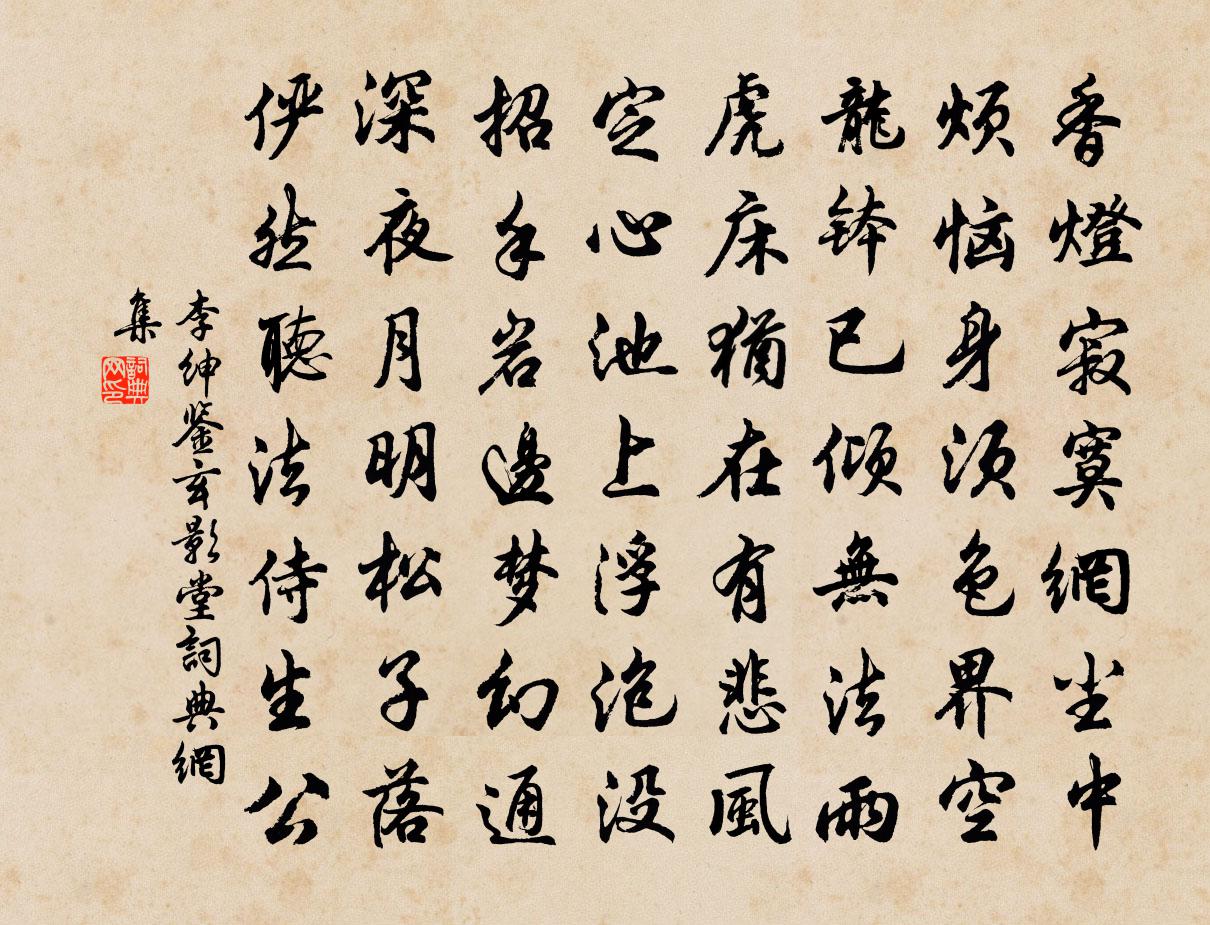 香燈寂寞網尘中
烦恼身须色界空
龍钵已倾無法雨
虎床猶在有悲風
定心池上浮泡没
招手岩邊梦幻通
深夜月明松子落
俨然聽法侍生公
李绅鉴玄影堂詞典網
集
詞典网印